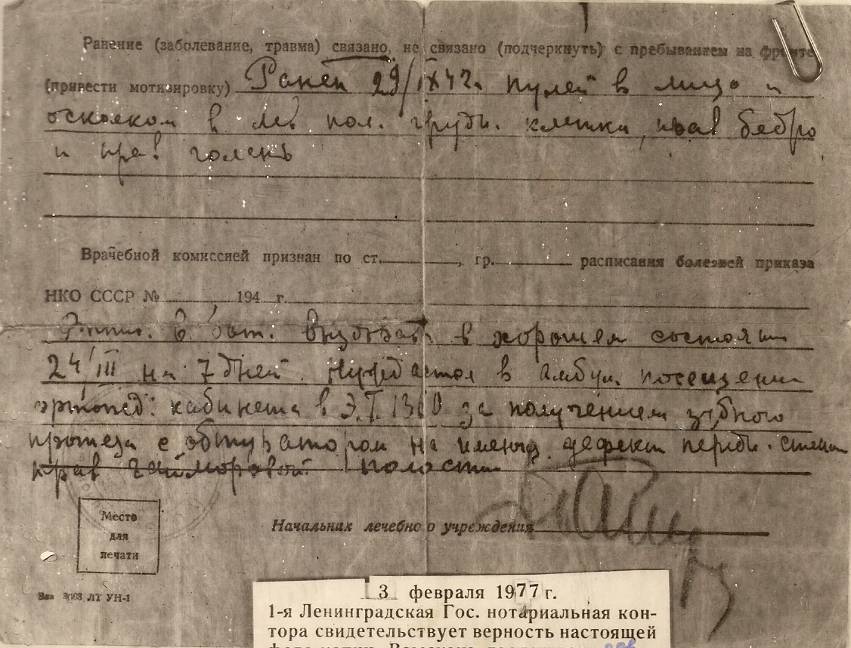 Ранение (заболевание, травма) связано, не связано (подчеркнуть) с пребыванием на фронте
(привести мотивировку) Ранен 29/IX 42 г. пулей в лицо и
осколком в лев. пол. грудн. клетки, прав бедро
и прав голень
Врачебной комиссией признан по ст. , гр. расписания болезней приказа
НКО СССР № 194 г.
в бат. в хорошем состоянии
24/III на 7 дней. Нуждается в амбул. посещении
ортопед. кабинета в Э.Г. 1380 за получением зубного
протеза с обтуратором на дефект передн. стенки
прав гайморовой полости
Начальник лечебного учреждения
Место
для
печати
ЛТ УН-1
3 февраля 1977 г.
1-я Ленинградская Гос. нотариальная кон-
тора свидетельствует верность настоящей